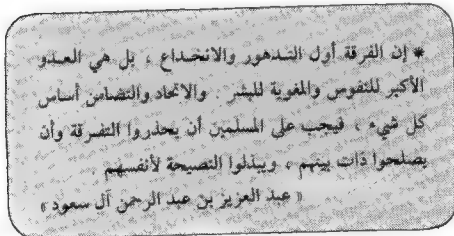 * إن الفرقة أول التدهور والانخداع ، بل هي العدو
الأكبر للنفوس والمغوية للبشر . والاتحاد والتضامن أساس
كل شيء ، فيجب على المسلمين أن يحذروا التفرقة وأن
يصلحوا ذات بينهم ، ويبذلوا النصيحة لأنفسهم .
« عبد العزيز بن عبد الرحمن آل سعود »